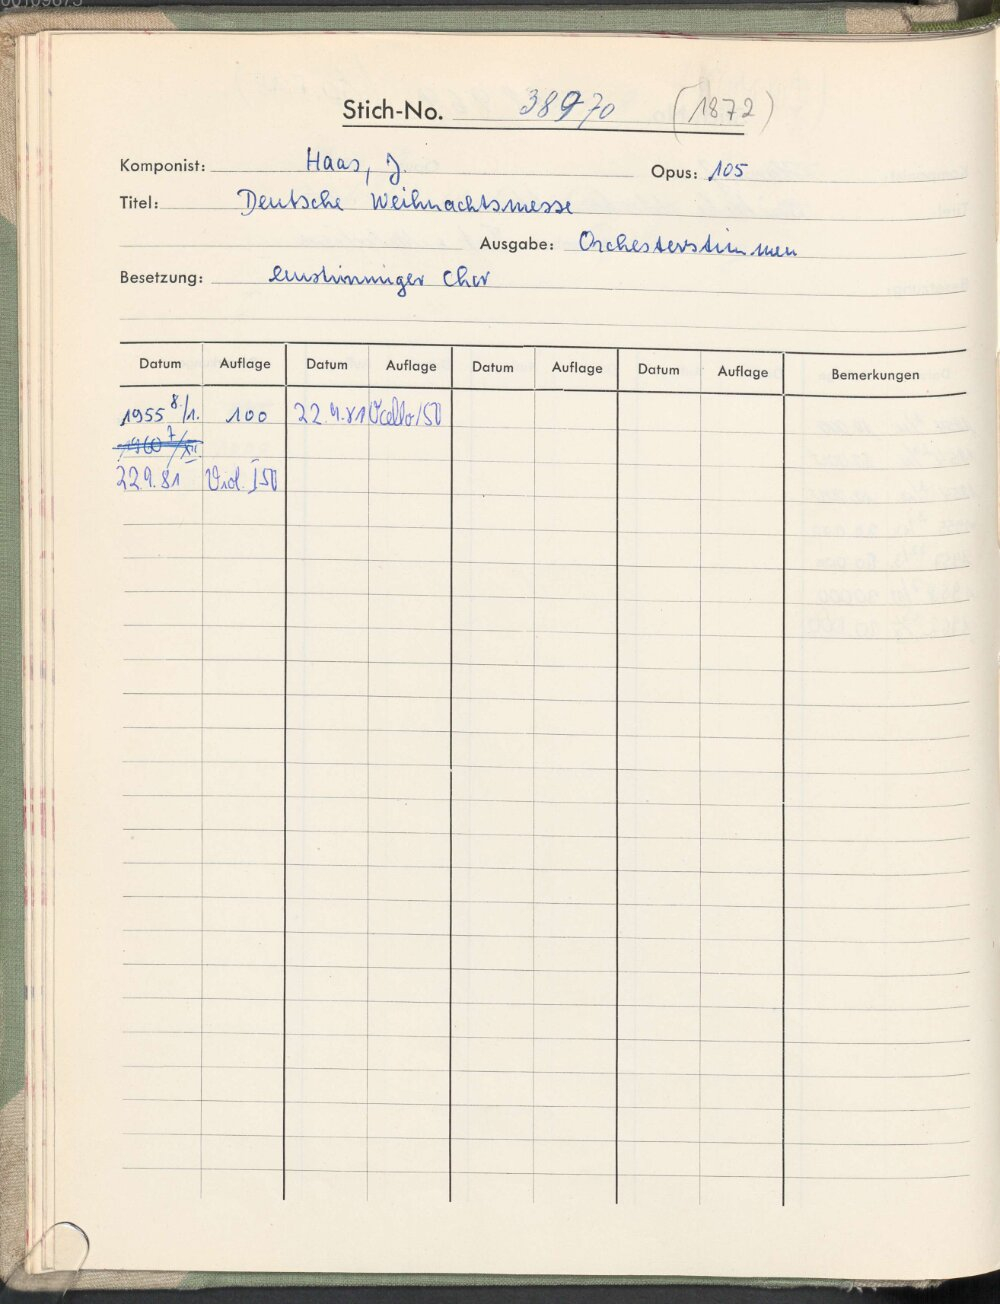 Stich-No. 38970 (1872)
Komponist: Haas, J. Opus: 105
Titel: Deutsche Weihnachtsmesse
Ausgabe: Orchesterstimmen
Besetzung: einstimmiger Chor
Datum Auflage Datum Auflage Datum Auflage Datum Auflage Bemerkungen
1955 8./1. 100 22.9.81 Vcello/50
1960 7/XII
22.9.81 Viol. I 50